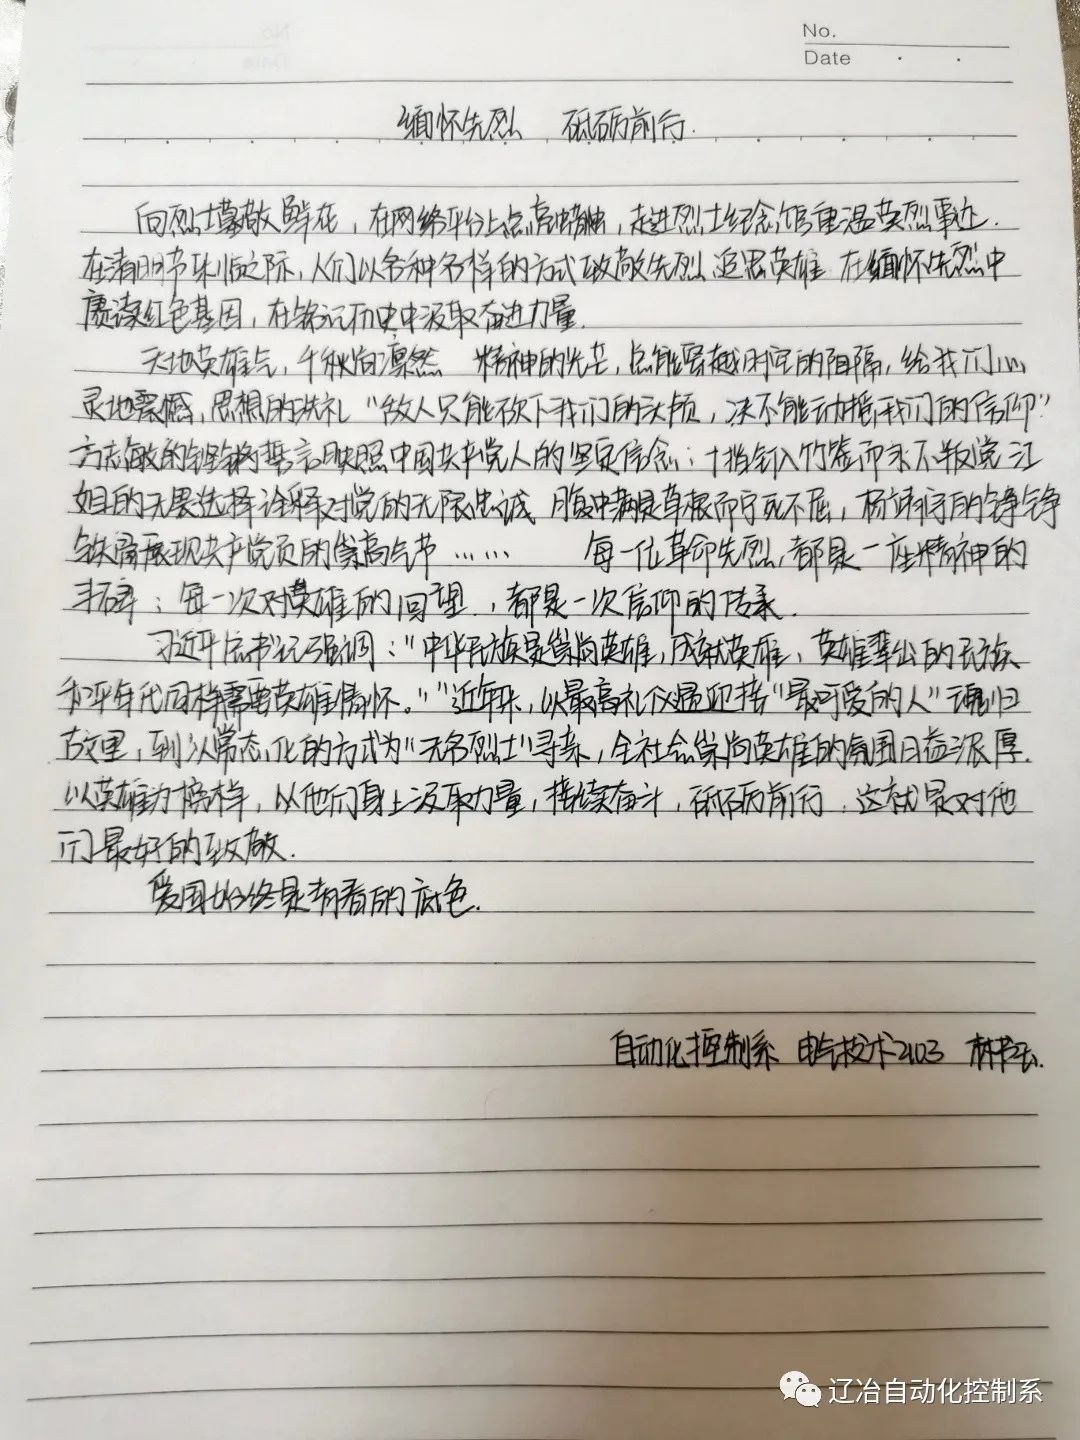 No.
Date
缅怀先烈 砥砺前行.
向烈士墓敬献鲜花，在网络平台上点亮烛，走进烈士纪念馆重温英烈事迹.
在清明节来临之际，人们以各种各样的方式致敬先烈 追思英雄 在缅怀先烈中
赓续红色基因，在铭记历史中汲取奋进力量.
天地英雄气，千秋尚凛然 精神的光芒，总能穿越时空的阻隔，给我们心
灵地震撼，思想的洗礼"敌人只能砍下我们的头颅，决不能动摇我们的信仰"
方志敏的铿锵誓言映照中国共产党人的坚定信念；十指钉入竹签而永不叛党 江
姐的无畏选择诠释对党的无限忠诚 腹中满是草根而宁死不屈，杨靖宇的铮铮
铁骨展现共产党员的崇高气节…… 每一位革命先烈，都是一座精神的
；每一次对英雄的回望，都是一次信仰的传承.
习近平总书记强调："中华民族是崇尚英雄，成就英雄、英雄辈出的民族
和平年代同样需要英雄情怀。""近年来，从最高礼仪迎接"最可爱的人"魂归
故里，到以常态化的方式为"无名烈士"寻亲，全社会崇尚英雄的氛围日益浓厚.
以英雄为榜样，从他们身上汲取力量，持续奋斗，砥砺前行，这就是对他
们最好的致敬.
爱国始终是青春的底色.
自动化控制系 电气技术2103 林
辽冶自动化控制系